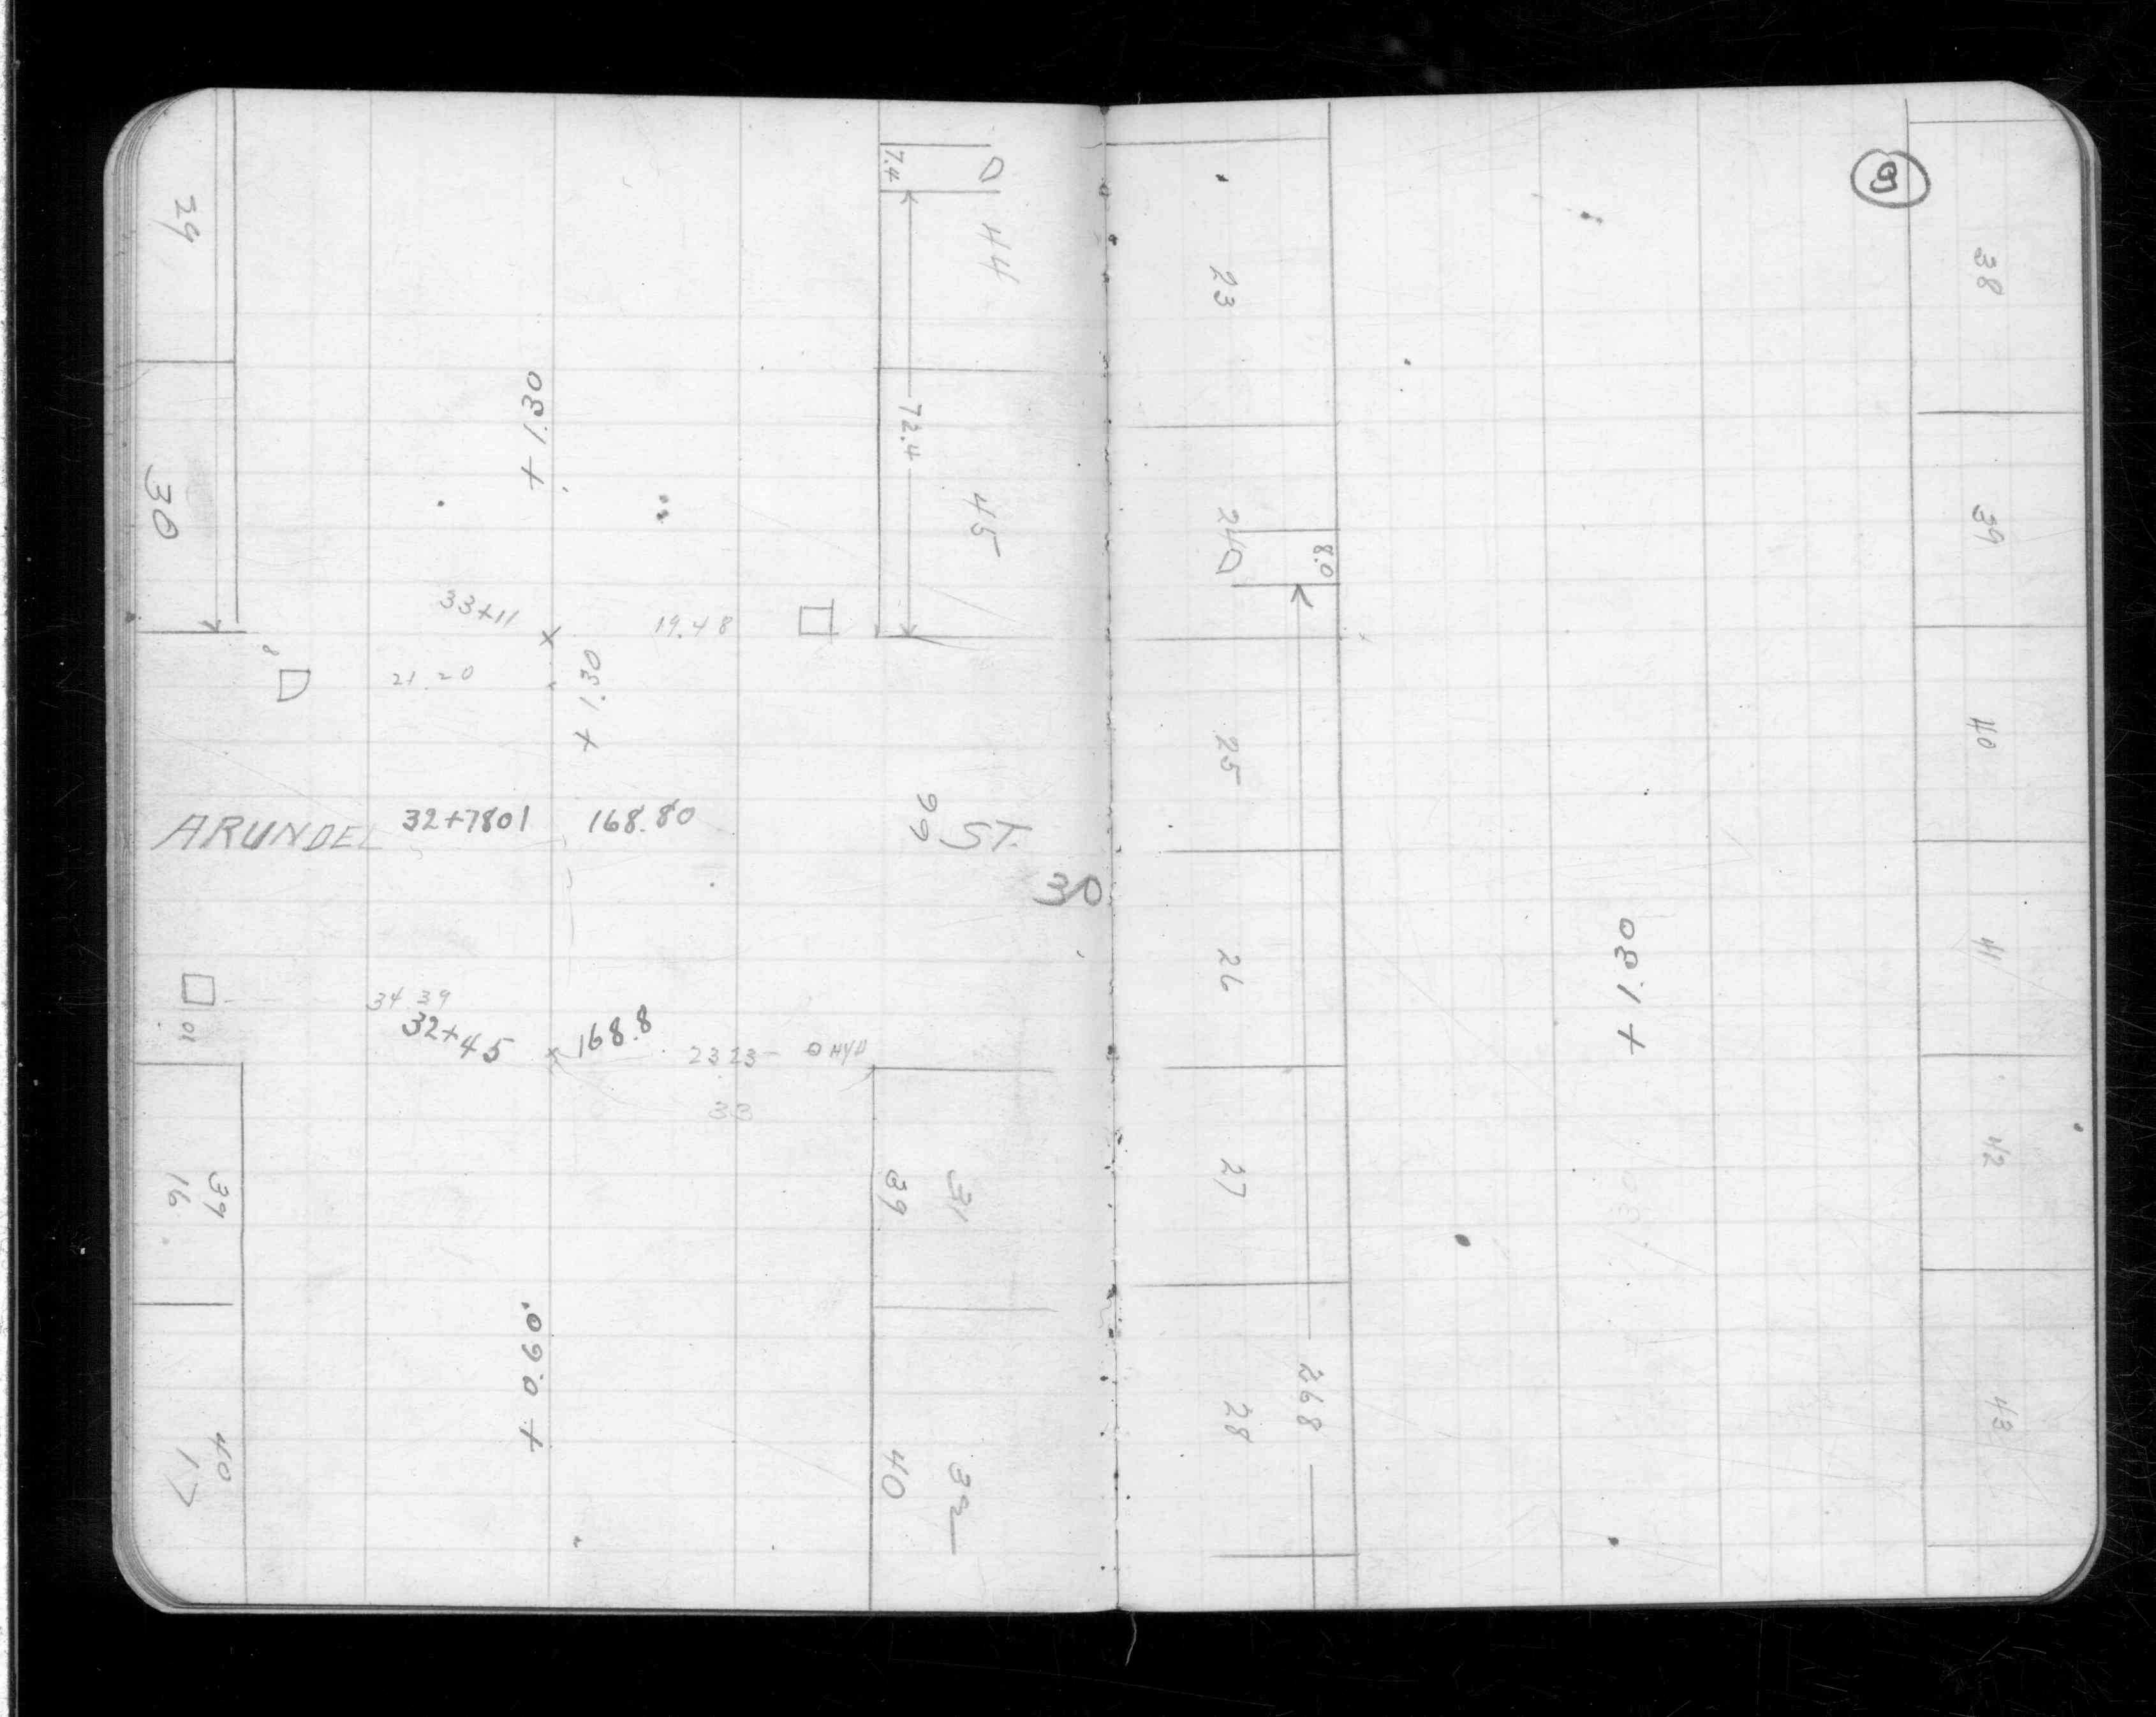 29
30
+ 1.30
7.4
44
72.4
45
33+11
19.48
21.20
+ 1.30
ARUNDEL 32+7801 168.80 66 ST.
30
34 39
32+45 168.8
23 23 HYD
33
10
39
16
39
31
+ 0.90
40
17
40
32
23
24
8.0
25
26
27
28
268
+ 1.30
38
39
40
41
42
43